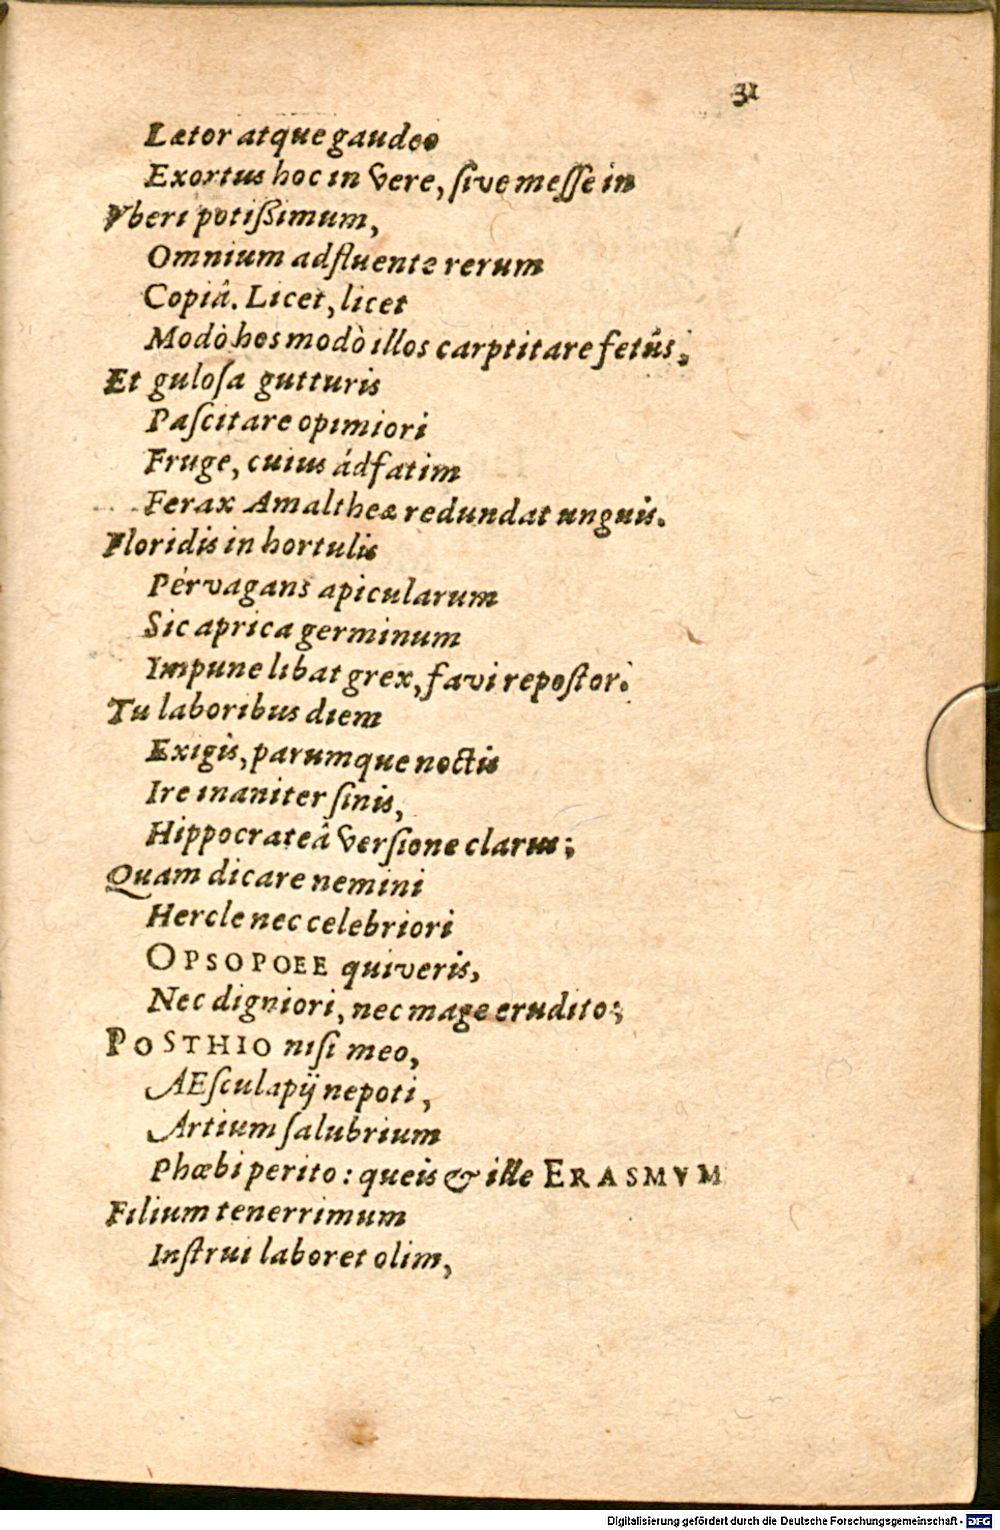 31
Lætor atque gaudeo
Exortus hoc in vere, ſive meſſe in
Vberi potiſſimum,
Omnium adfluente rerum
Copiâ. Licet, licet
Modò hos modò illos carptitare fetûs;
Et guloſa gutturis
Paſcitare opimiori
Fruge, cuius ádfatim
Ferax Amaltheæ redundat unguis.
Floridis in hortulis
Pérvagans apicularum
Sic aprica germinum
Impune libat grex, favi repoſtor.
Tu laboribus diem
Exigis, parumque noctis
Ire inaniter ſinis,
Hippocrateâ verſione clarus;
Quam dicare nemini
Hercle nec celebriori
OPSOPOEE quiveris,
Nec digniori, nec mage erudito;
POSTHIO niſi meo,
AEſculapij nepoti,
Artium ſalubrium
Phœbi perito: queis & ille ERASMVM
Filium tenerrimum
Inſtrui laboret olim,
Digitalisierung gefördert durch die Deutsche Forschungsgemeinschaft - DFG